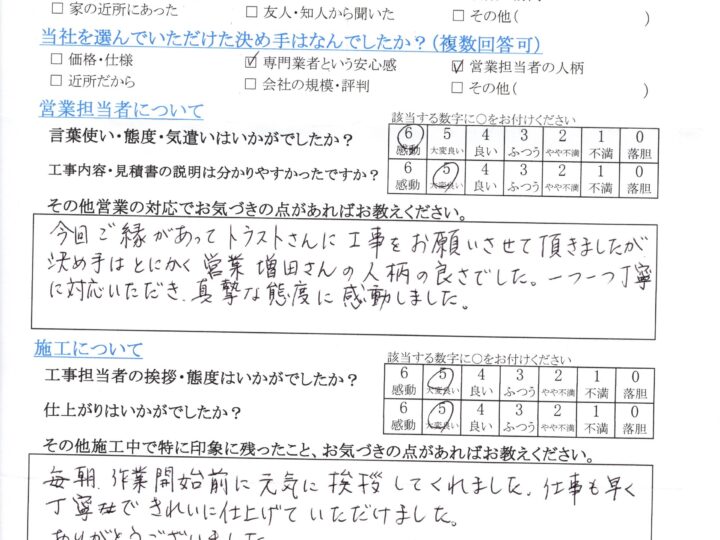 □ 家の近所にあった □ 友人・知人から聞いた □ その他( )
当社を選んでいただけた決め手はなんでしたか？(複数回答可)
□ 価格・仕様 ☑ 専門業者という安心感 ☑ 営業担当者の人柄
□ 近所だから □ 会社の規模・評判 □ その他( )
営業担当者について
該当する数字に○をお付けください
言葉使い・態度・気遣いはいかがでしたか？ 6 5 4 3 2 1 0
感動 大変良い 良い ふつう やや不満 不満 落胆
工事内容・見積書の説明は分かりやすかったですか？ 6 5 4 3 2 1 0
感動 大変良い 良い ふつう やや不満 不満 落胆
その他営業の対応でお気づきの点があればお教えください。
今回ご縁があってトラストさんに工事をお願いさせて頂きましたが
決め手はとにかく営業増田さんの人柄の良さでした。一つ一つ丁寧
に対応いただき、真摯な態度に感動しました。
施工について
該当する数字に○をお付けください
工事担当者の挨拶・態度はいかがでしたか？ 6 5 4 3 2 1 0
感動 大変良い 良い ふつう やや不満 不満 落胆
仕上がりはいかがでしたか？ 6 5 4 3 2 1 0
感動 大変良い 良い ふつう やや不満 不満 落胆
その他施工中で特に印象に残ったこと、お気づきの点があればお教えください。
毎朝、作業開始前に元気に挨拶してくれました。仕事も早く
丁寧できれいに仕上げていただけました。
ありがとうございました